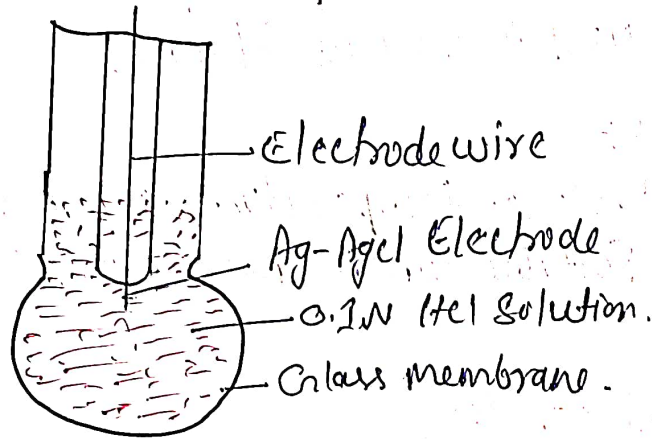 Electrode wire
Ag-Agcl Electrode
0.1N Hcl Solution.
Glass membrane.